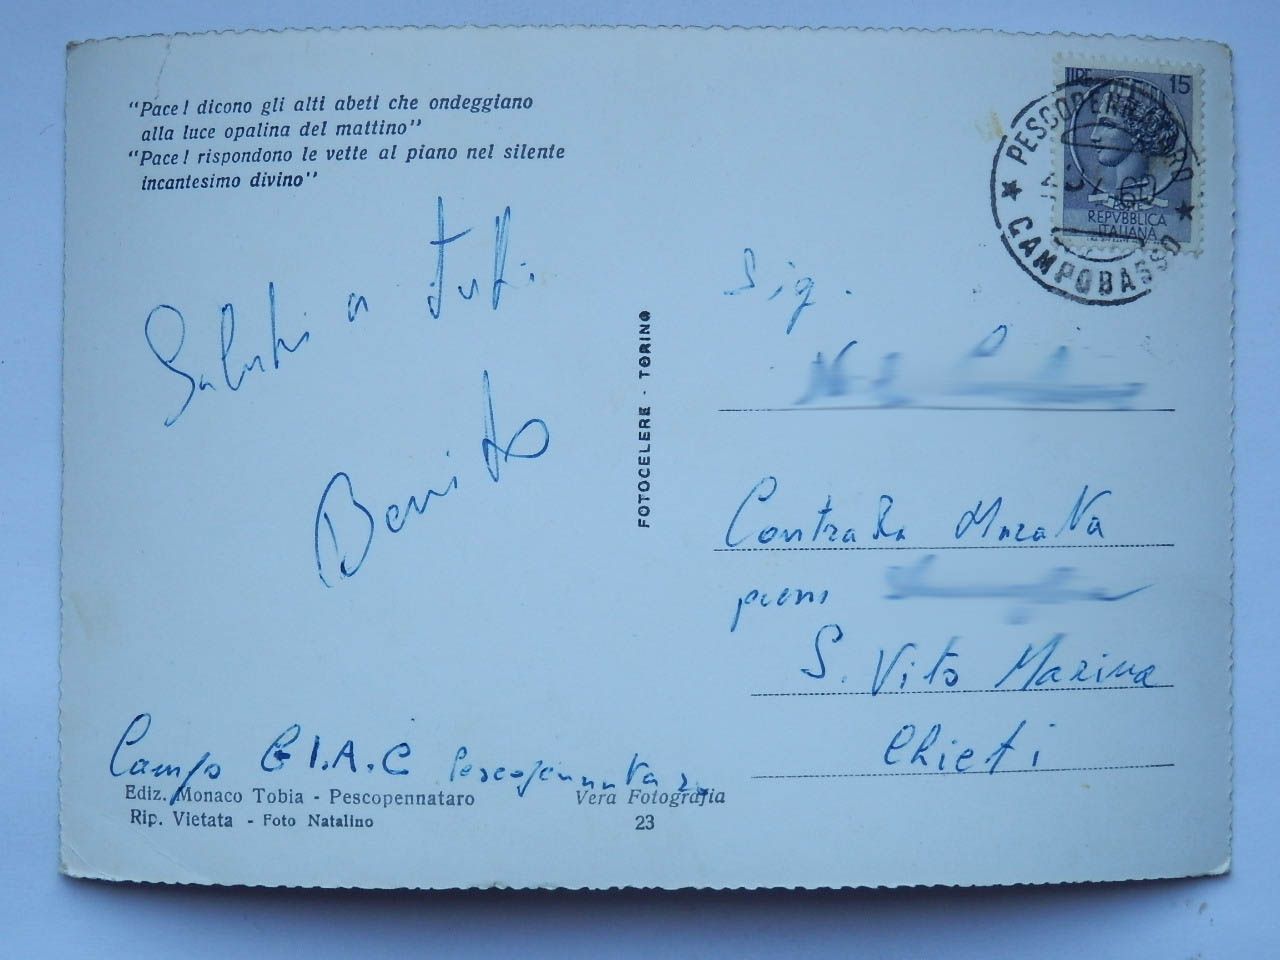 "Pace! dicono gli alti abeti che ondeggiano
alla luce opalina del mattino"
"Pace! rispondono le vette al piano nel silente
incantesimo divino"
Saluti a tutti
Benito
Camps G.I.A.C Pescopennataro
Ediz. Monaco Tobia - Pescopennataro
Rip. Vietata - Foto Natalino
Vera Fotografia
23
FOTOCELERE - TORINO
LIRE 15
REPVBBLICA
ITALIANA
PESCOPENNATARO
CAMPOBASSO
Sig.
Contrada Murata
S. Vito Marina
Chieti